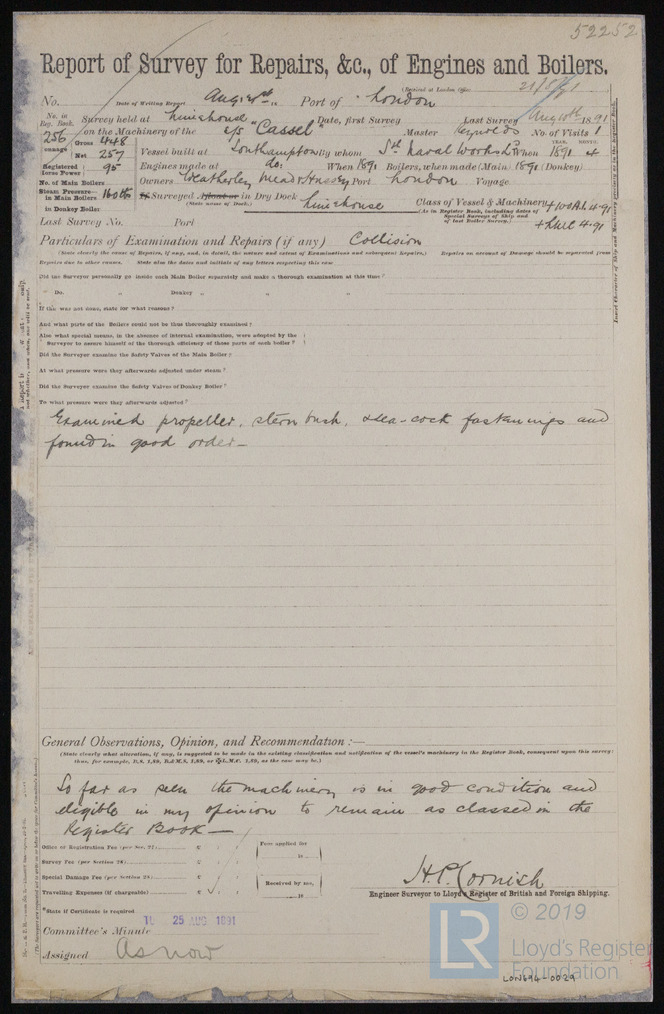 52252
Report of Survey for Repairs, &c., of Engines and Boilers.
(Received at London Office 21/8/91
No. Date of Writing Report Aug: 21st Port of London
No. in Reg. Book. Survey held at Limehouse Date, first Survey Last Survey Aug 10th 1891
256 on the Machinery of the s/s "Cassel" Master Reynolds No. of Visits 1
Tonnage Gross 448 Net 257 Vessel built at Southampton By whom Sth Naval Works Ld When 1891 4
YEAR. MONTH.
Registered Horse Power 95 Engines made at do: When 1891 Boilers, when made (Main) 1891 (Donkey)
No. of Main Boilers Owners Weatherley Mead & Hussey Port London Voyage
Steam Pressure in Main Boilers 160 lbs If Surveyed Afloat or in Dry Dock Limehouse
(State name of Dock.)
in Donkey Boiler
Class of Vessel & Machinery +100A1. 4.91
(As in Register Book, including dates of Special Surveys of Ship and of last Boiler Survey.) + LMC 4.91
Last Survey No. Port
Particulars of Examination and Repairs (if any) Collision
(State clearly the cause of Repairs, if any, and, in detail, the nature and extent of Examinations and subsequent Repairs.) Repairs on account of Damage should be separated from
Repairs due to other causes. State also the dates and initials of any letters respecting this case
Did the Surveyor personally go inside each Main Boiler separately and make a thorough examination at this time?
" Do. " Donkey " " "
If this was not done, state for what reasons?
And what parts of the Boilers could not be thus thoroughly examined?
Also what special means, in the absence of internal examination, were adopted by the
Surveyor to assure himself of the thorough efficiency of those parts of each boiler?
Did the Surveyor examine the Safety Valves of the Main Boiler?
At what pressure were they afterwards adjusted under steam?
Did the Surveyor examine the Safety Valves of Donkey Boiler?
To what pressure were they afterwards adjusted?
Examined propeller, stern bush, & sea-cock fastenings and
found in good order—
General Observations, Opinion, and Recommendation :—
(State clearly what alteration, if any, is suggested to be made in the existing classification and notification of the vessel's machinery in the Register Book, consequent upon this survey:
thus, for example, B.S. 1,89, B.&M.S. 1,89, or ✠L.M.C. 1,89, as the case may be.)
So far as seen the machinery is in good condition and
eligible in my opinion to remain as classed in the
Register Book—
Office or Registration Fee (per Sec. 27) £ : :
Fees applied for
18
Survey Fee (per Section 28) £ : :
Special Damage Fee (per Section 28) £ : :
Received by me,
18
Travelling Expenses (if chargeable) £ : :
H.P. Cornish
Engineer Surveyor to Lloyd's Register of British and Foreign Shipping.
*State if Certificate is required
TU 25 AUG 1891
Committee's Minute
Assigned As now
LR
© 2019
Lloyd's Register
Foundation
LON694-0029